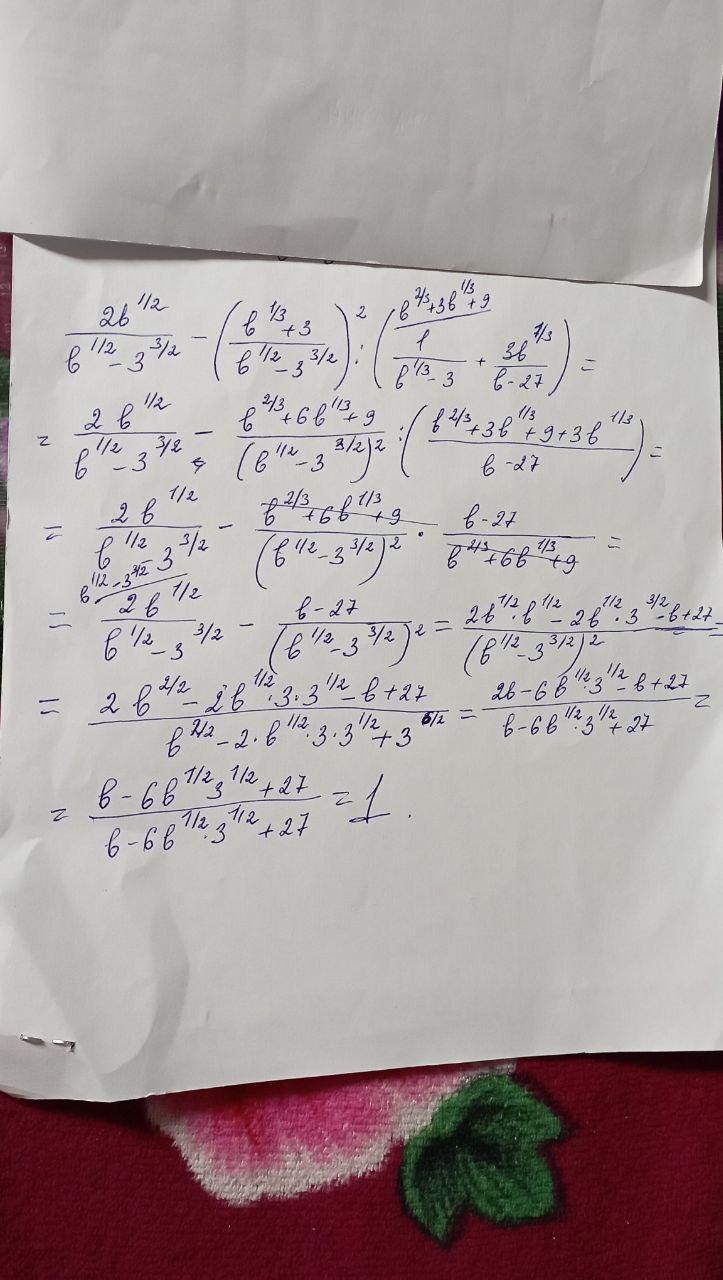 b^{2/3}+3b^{1/3}+9
\frac{2b^{1/2}}{b^{1/2}-3^{3/2}} - \left(\frac{b^{1/3}+3}{b^{1/2}-3^{3/2}}\right)^2 : \left(\frac{1}{b^{1/3}-3} + \frac{3b^{1/3}}{b-27}\right) =
= \frac{2b^{1/2}}{b^{1/2}-3^{3/2}} - \frac{b^{2/3}+6b^{1/3}+9}{(b^{1/2}-3^{3/2})^2} : \left(\frac{b^{2/3}+3b^{1/3}+9+3b^{1/3}}{b-27}\right) =
= \frac{2b^{1/2}}{b^{1/2}-3^{3/2}} - \frac{b^{2/3}+6b^{1/3}+9}{(b^{1/2}-3^{3/2})^2} \cdot \frac{b-27}{b^{2/3}+6b^{1/3}+9} =
b^{1/2}-3^{3/2}
= \frac{2b^{1/2}}{b^{1/2}-3^{3/2}} - \frac{b-27}{(b^{1/2}-3^{3/2})^2} = \frac{2b^{1/2} \cdot b^{1/2} - 2b^{1/2} \cdot 3^{3/2} - b+27}{(b^{1/2}-3^{3/2})^2} =
= \frac{2b^{2/2} - 2b^{1/2} \cdot 3 \cdot 3^{1/2} - b+27}{b^{2/2} - 2 \cdot b^{1/2} \cdot 3 \cdot 3^{1/2} + 3^{6/2}} = \frac{2b - 6b^{1/2} \cdot 3^{1/2} - b + 27}{b - 6b^{1/2} \cdot 3^{1/2} + 27} =
= \frac{b - 6b^{1/2} 3^{1/2} + 27}{b - 6b^{1/2} \cdot 3^{1/2} + 27} = 1.